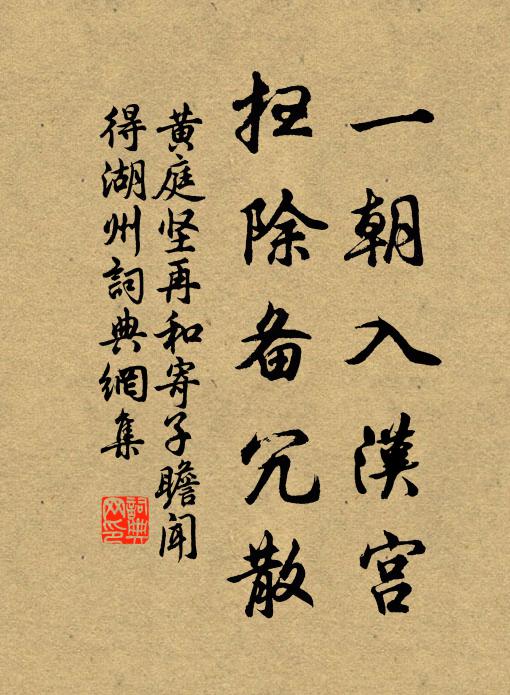 一朝入漢宫
扫除备冗散
黄庭坚再和寄子瞻闻
得湖州詞典網集
詞典
网印